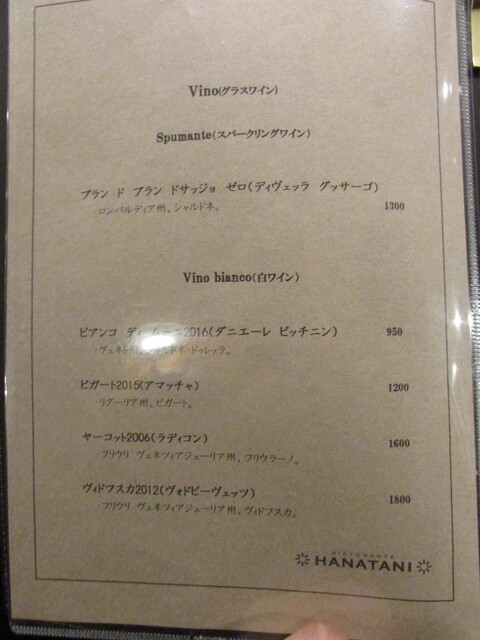 Vino(グラスワイン)
Spumante(スパークリングワイン)
ブラン ド ブラン ドサッジョ ゼロ(ディヴェッラ グッサーゴ)
・ロンバルディア州、シャルドネ。 1300
Vino bianco(白ワイン)
ビアンコ ディ 2016(ダニエーレ ピッチニン) 950
・ヴェネト州、シャルドネ・ドゥレッラ。
ピガート2015(アマッチャ) 1200
・リグーリア州、ピガート。
ヤーコット2006(ラディコン) 1600
・フリウリ ヴェネツィアジューリア州、フリウラーノ。
ヴィドフスカ2012(ヴォドピーヴェッツ) 1800
・フリウリ ヴェネツィアジューリア州、ヴィドフスカ。
RISTORANTE
HANATANI